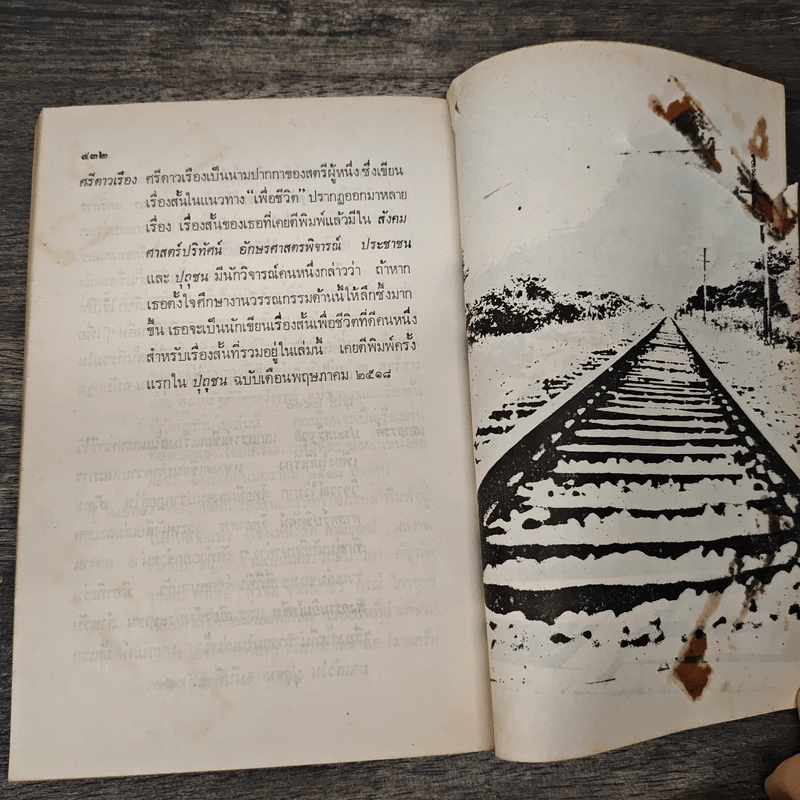 ๔๓๒
ศรีดาวเรือง ศรีดาวเรืองเป็นนามปากกาของสตรีผู้หนึ่ง ซึ่งเขียน
เรื่องสั้นในแนวทาง “เพื่อชีวิต” ปรากฏออกมาหลาย
เรื่อง เรื่องสั้นของเธอที่เคยตีพิมพ์แล้วมีใน สังคม
ศาสตร์ปริทัศน์ อักษรศาสตรพิจารณ์ ประชาชน
และ ปุถุชน มีนักวิจารณ์คนหนึ่งกล่าวว่า ถ้าหาก
เธอตั้งใจศึกษางานวรรณกรรมด้านนี้ให้ลึกซึ้งมาก
ขึ้น เธอจะเป็นนักเขียนเรื่องสั้นเพื่อชีวิตที่ดีคนหนึ่ง
สำหรับเรื่องสั้นที่รวมอยู่ในเล่มนี้ เคยตีพิมพ์ครั้ง
แรกใน ปุถุชน ฉบับเดือนพฤษภาคม ๒๕๑๘